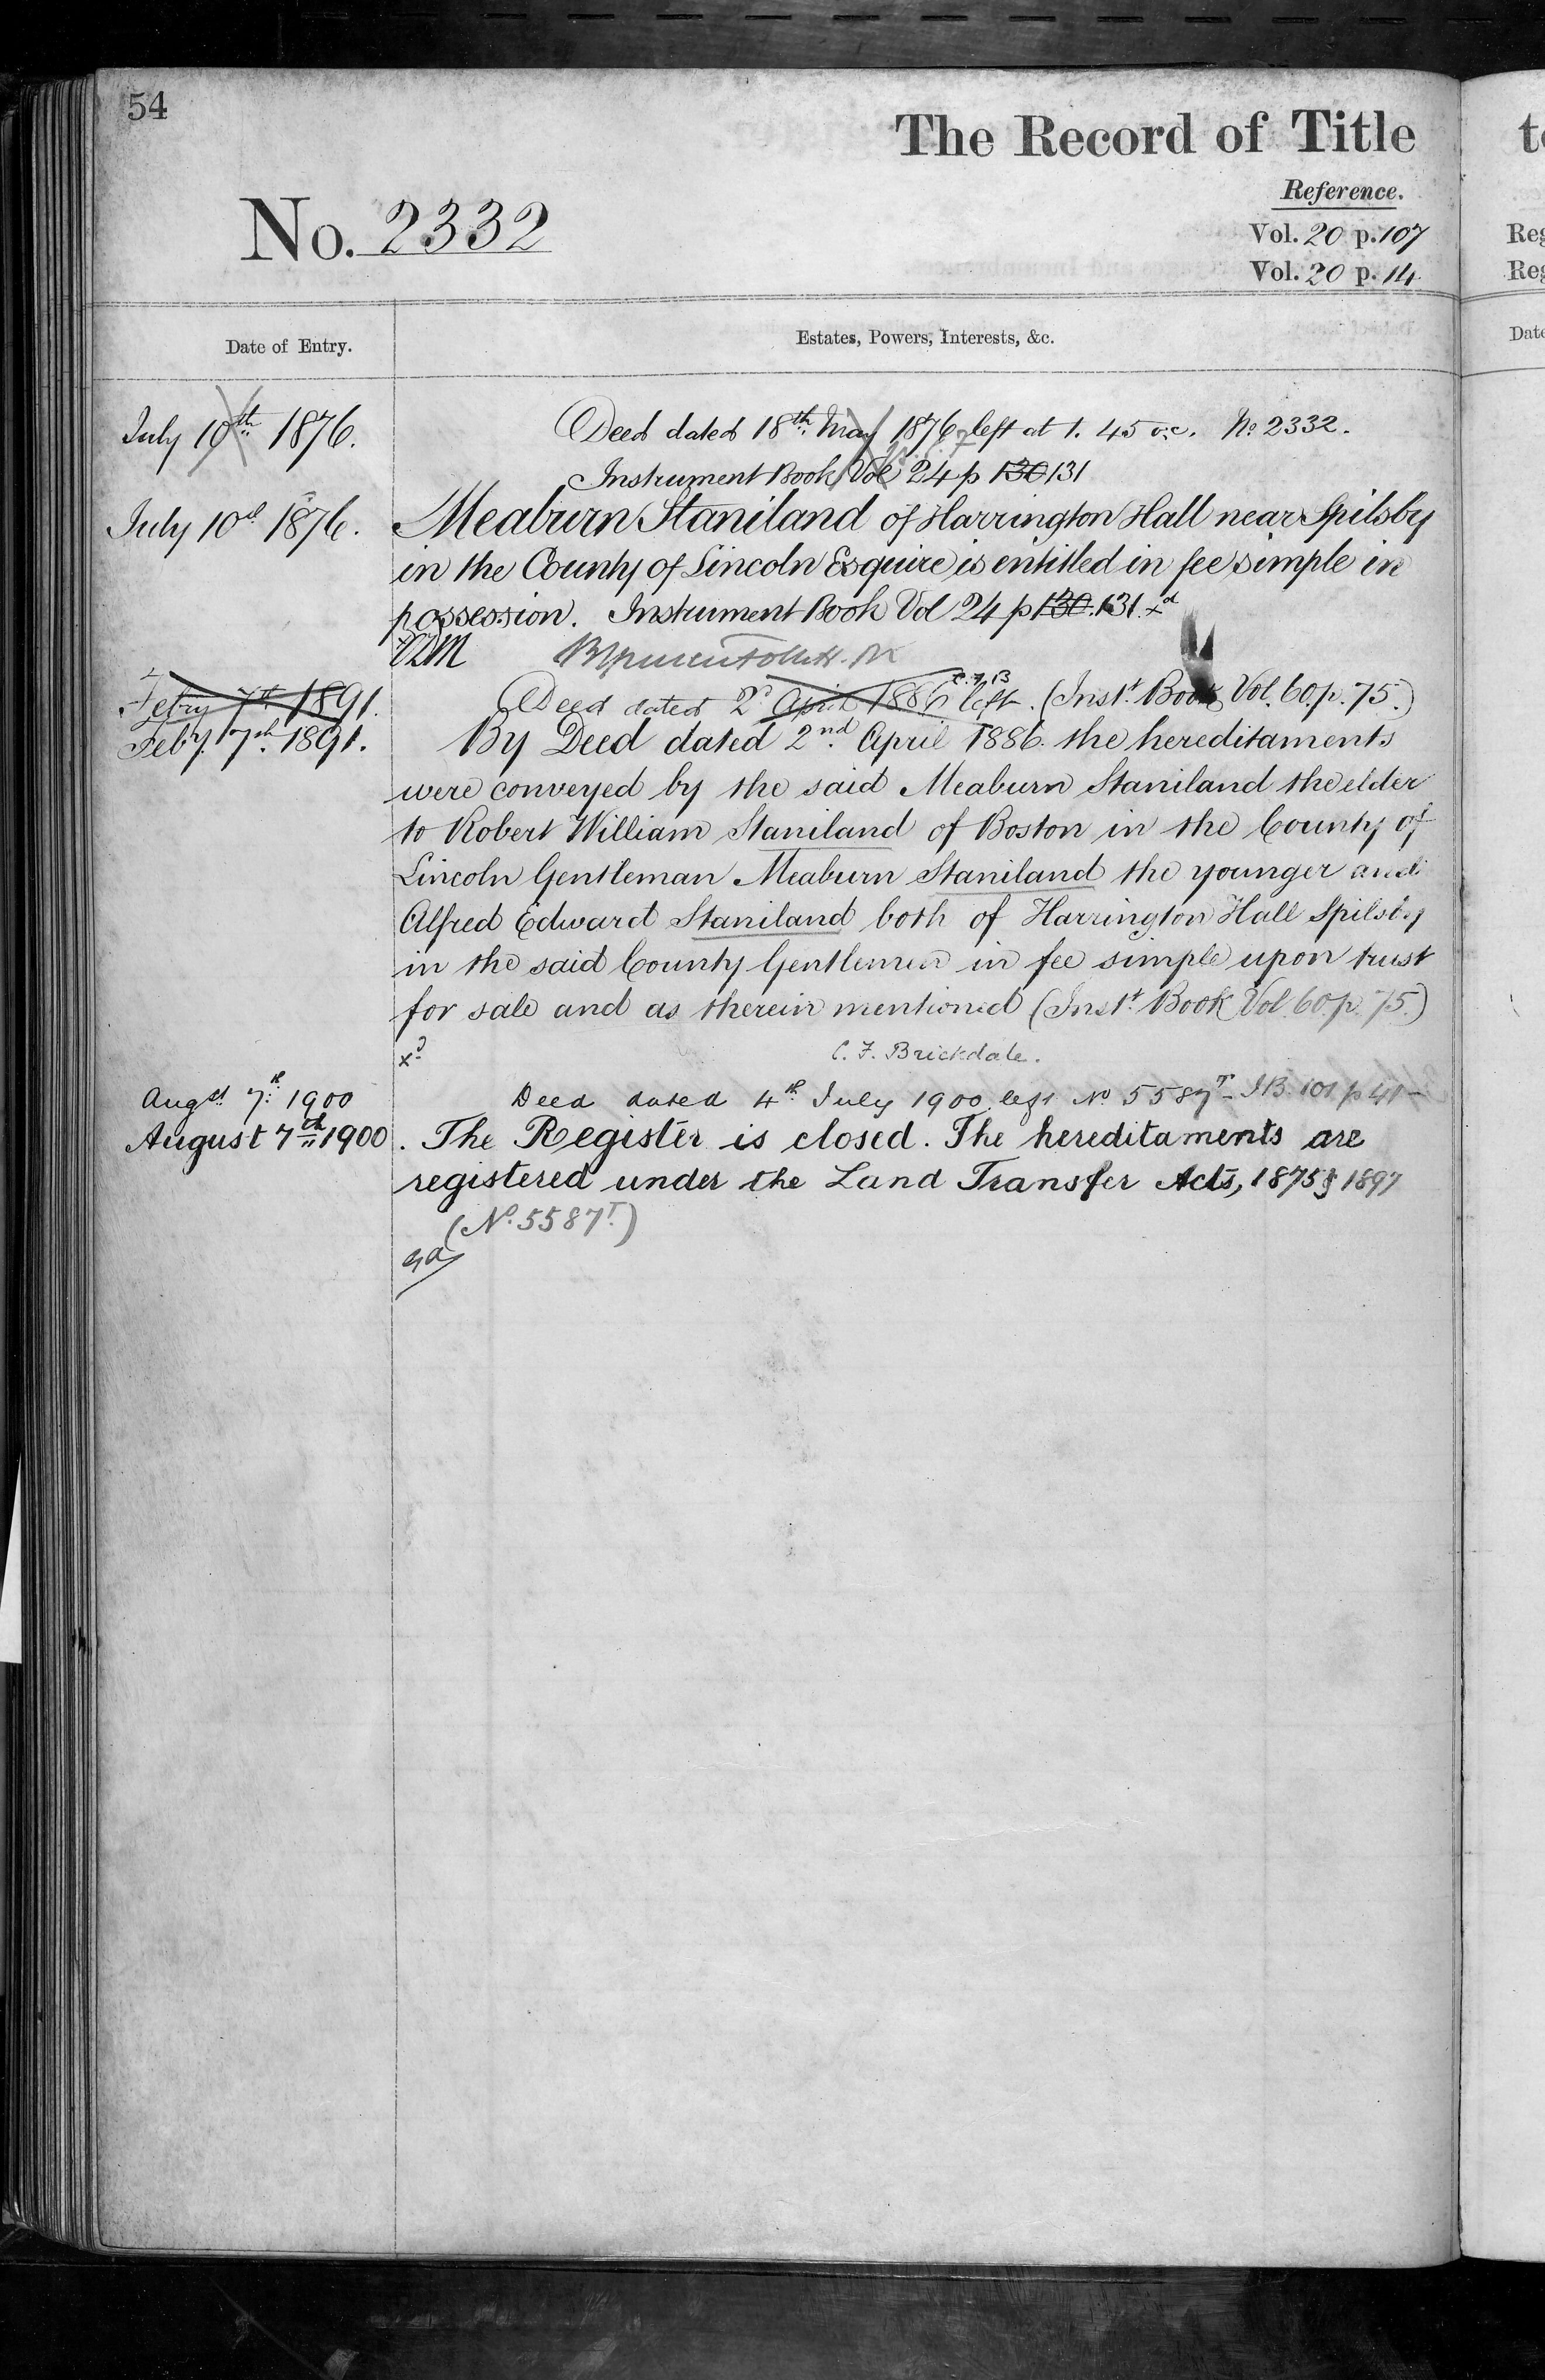 54
The Record of Title
Reference.
No. 2332
Vol. 20 p. 107
Vol. 20 p. 14
Date of Entry.
Estates, Powers, Interests, &c.
July 10th 1876.
Deed dated 18th May 1876 left at 1. 45 o.c. No. 2332.
Instrument Book Vol 24 p 130 131
July 10th 1876.
Meaburn Staniland of Harrington Hall near Spilsby
in the County of Lincoln Esquire is entitled in fee simple in
possession. Instrument Book Vol 24 p 130. 131. xd
Febry 7th 1891.
Deed dated 2d April 1886 left. (Inst. Book Vol. 60. p. 75.)
Feby. 7th 1891.
By Deed dated 2nd April 1886. the hereditaments
were conveyed by the said Meaburn Staniland the elder
to Robert William Staniland of Boston in the County of
Lincoln Gentleman Meaburn Staniland the younger and
Alfred Edward Staniland both of Harrington Hall Spilsby
in the said County Gentlemen in fee simple upon trust
for sale and as therein mentioned (Inst. Book Vol. 60. p. 75.)
xd
C. F. Brickdale.
Augst. 7th 1900
Deed dated 4th July 1900 left No 5587T - I.B. 101. p 41 -
August 7th 1900.
The Register is closed. The hereditaments are
registered under the Land Transfer Acts, 1875 & 1897
(No. 5587T.)